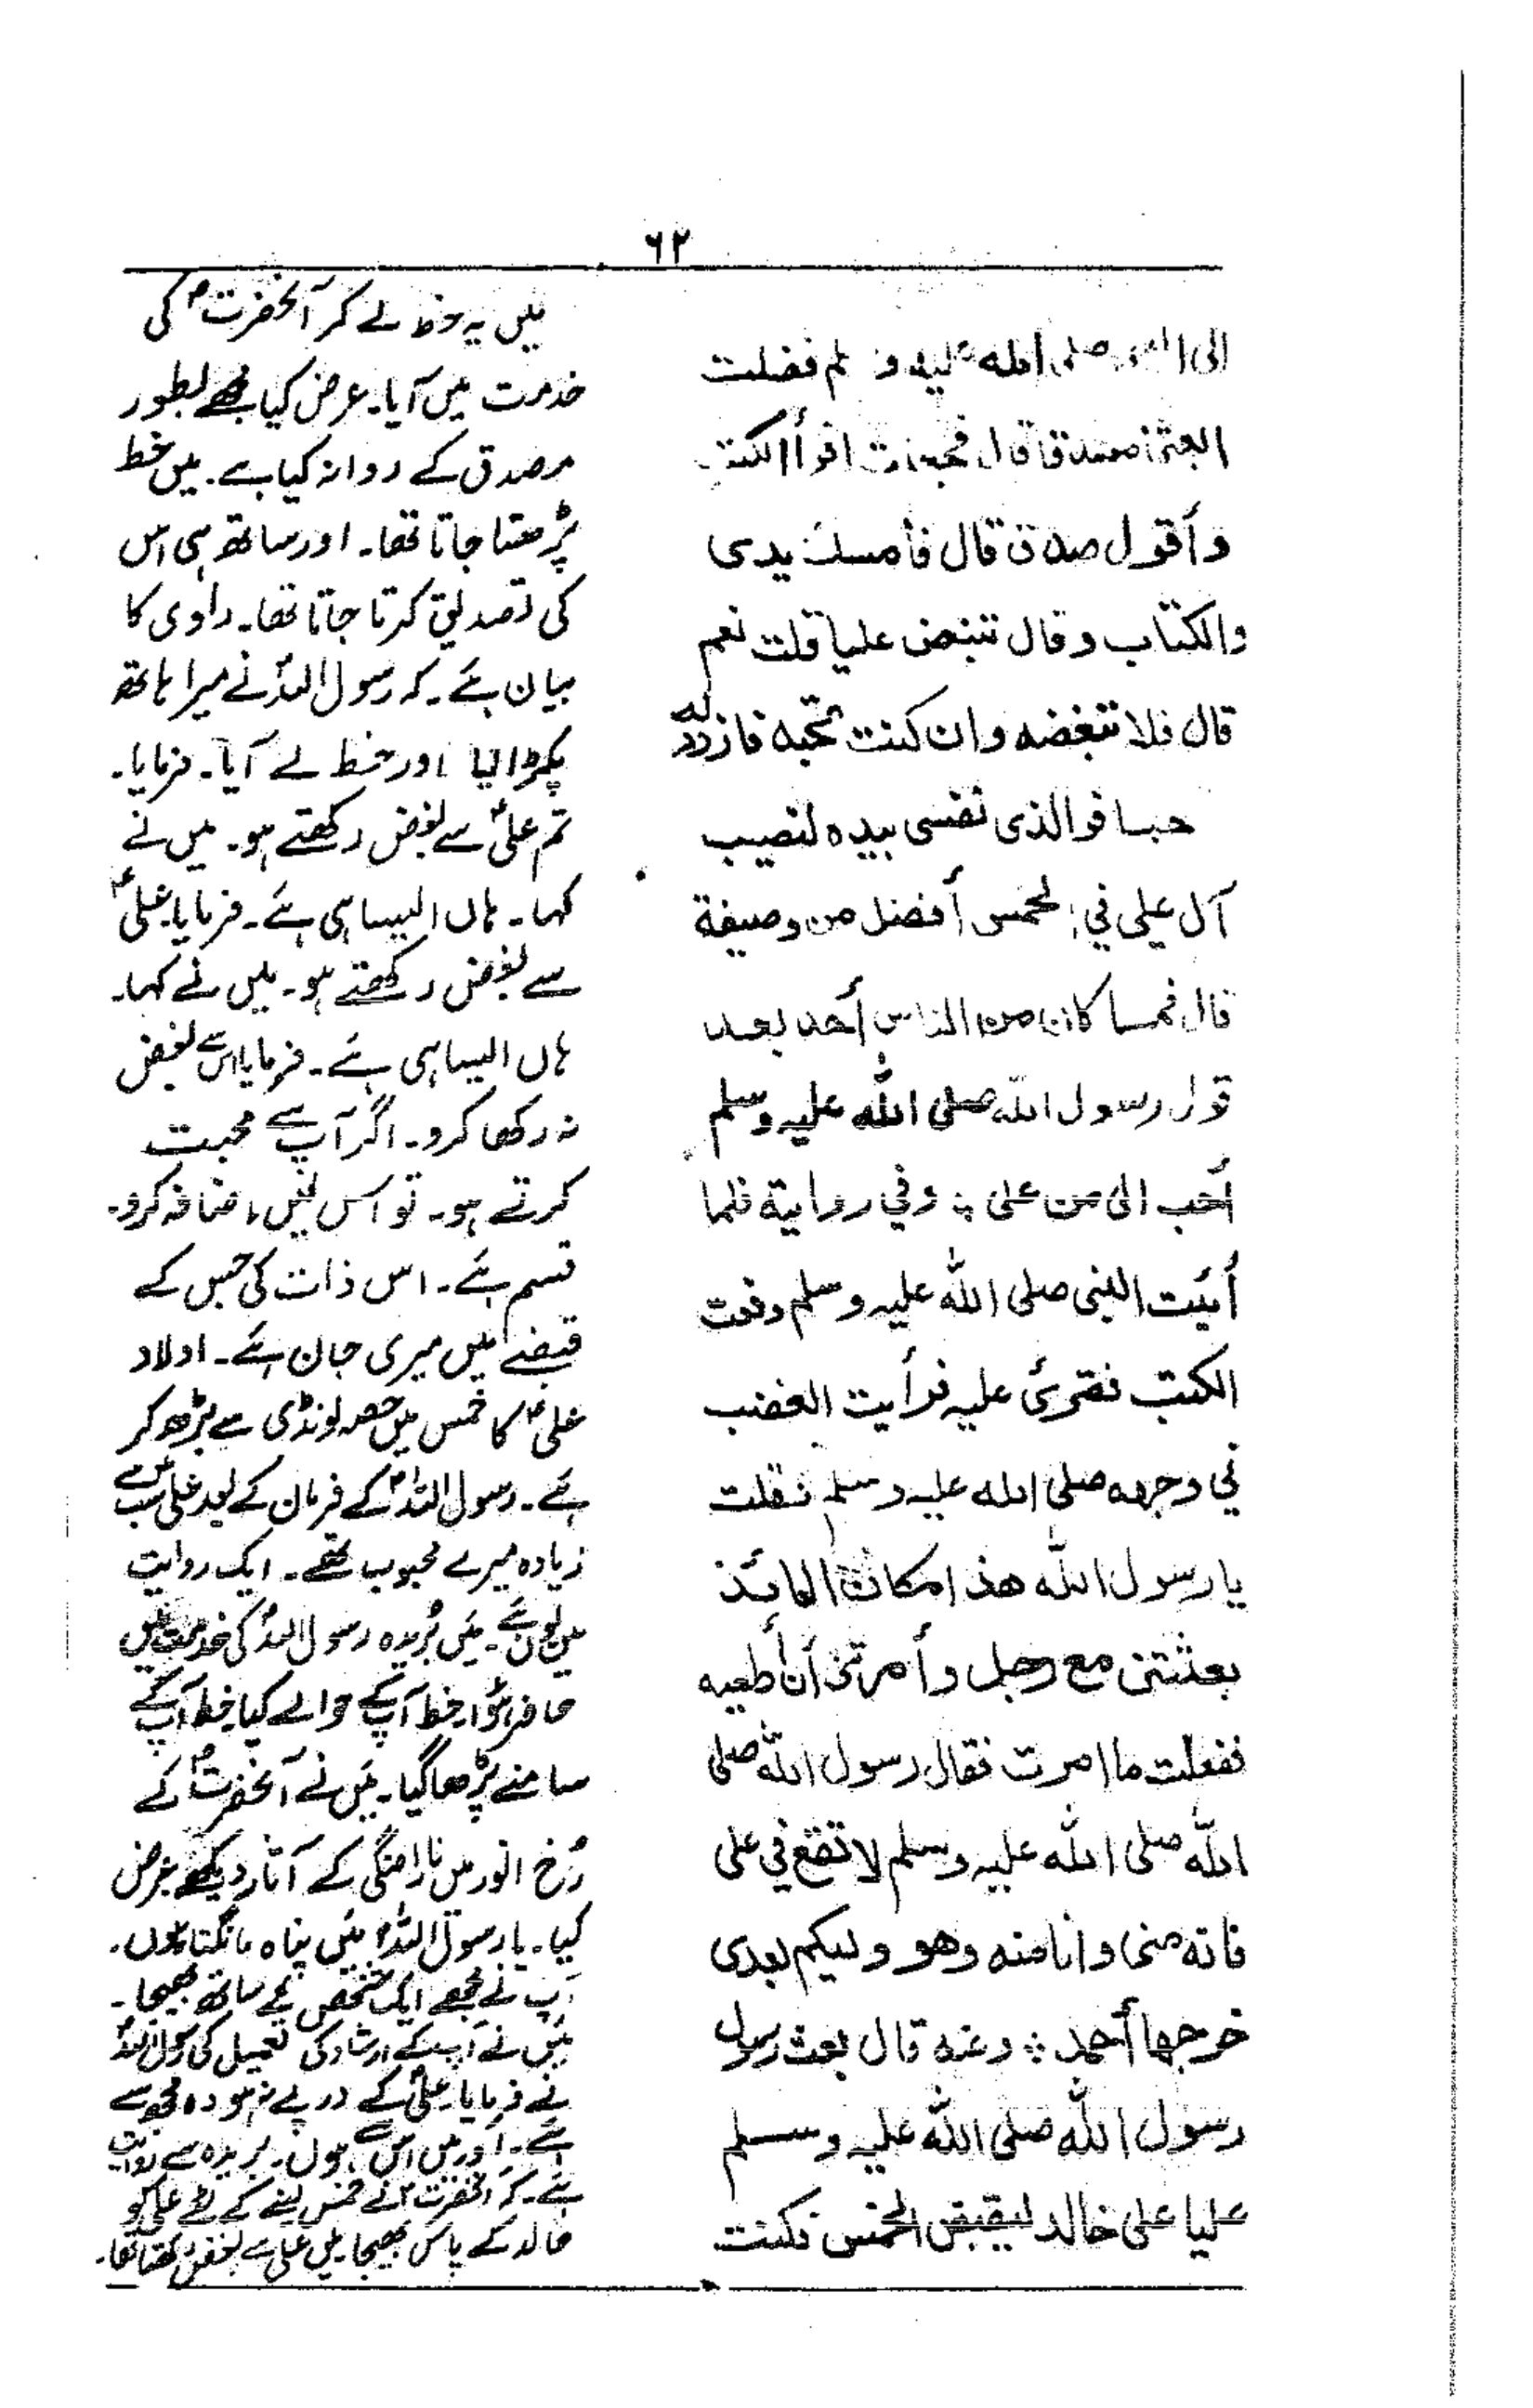 ٦٢
الى النبى صلى الله عليه و سلم فضلت
ابعثنا مصدقا قال فجعلت اقرأ الكتب
وأقول صدق قال فأمسك يدى
والكتاب وقال تبغض عليا قلت نعم
قال فلا تبغضه وان كنت تحبه فازدد له
حبا فو الذى نفسى بيده لنصيب
آل علي في الخمس أفضل من وصيفة
قال فمسا كان من الناس أحد بعد
قول رسول الله صلى الله عليه وسلم
أحب الى من على ؛ وفي رواية فلما
أتيت النبى صلى الله عليه وسلم دفعت
الكتب فقرئ عليه فرأيت الغضب
في وجهه صلى الله عليه وسلم فقلت
يا رسول الله هذا مكان العائذ
بعثتنى مع رجل وأمرتنى أن أطعيه
ففعلت ما امرت فقال رسول الله صلى
الله صلى الله عليه وسلم لا تقع في على
فانه منى وانا منه وهو وليكم بعدى
خرجها أحمد ؛ وعنه قال بعث رسول
رسول الله صلى الله عليه وسلم
عليا على خالد ليقبض الخمس فكنت
میں یہ خط لے کر آنحضرتؐ کی
خدمت میں آیا۔ عرض کیا مجھے بطور
مصدق کے روانہ کیا ہے۔ میں خط
پڑھتا جاتا تھا۔ اور ساتھ ہی اس
کی تصدیق کرتا جاتا تھا۔ راوی کا
بیان ہے۔ کہ رسول اللہؐ نے میرا ہاتھ
پکڑا لیا اور خط لے آیا۔ فرمایا۔
تم علیؑ سے بغض رکھتے ہو۔ میں نے
کہا۔ ہاں ایسا ہی ہے۔ فرمایا علیؑ
سے بغض رکھتے ہو۔ میں نے کہا۔
ہاں ایسا ہی ہے۔ فرمایا اس سے بغض
نہ رکھا کرو۔ اگر آپ سے محبت
کرتے ہو۔ تو اس میں اضافہ کرو۔
قسم ہے۔ اس ذات کی جس کے
قبضے میں میری جان ہے۔ اولاد
علیؑ کا خمس میں حصہ لونڈی سے بڑھ کر
ہے۔ رسول اللہؐ کے فرمان کے بعد علیؑ سب سے
زیادہ میرے محبوب تھے۔ ایک روایت
میں یوں ہے۔ میں بُریدہ رسول اللہؐ کی خدمت میں
حاضر ہوا۔ خط آپ کے حوالے کیا۔ خط آپ کے
سامنے پڑھا گیا۔ میں نے آنحضرتؐ کے
رُخ انور میں ناراضگی کے آثار دیکھے عرض
کیا۔ یا رسول اللہؐ میں پناہ مانگتا ہوں۔
آپ نے مجھے ایک شخص کے ساتھ بھیجا۔
میں نے آپ کے ارشاد کی تعمیل کی رسول اللہؐ
نے فرمایا علیؑ کے درپے نہ ہو وہ مجھ سے
ہے۔ اور میں اس سے ہوں۔ بریدہ سے روایت
ہے۔ کہ آنحضرتؐ نے خمس لینے کے لئے علیؑ کو
خالد کے پاس بھیجا۔ میں علیؑ سے بغض رکھتا تھا۔